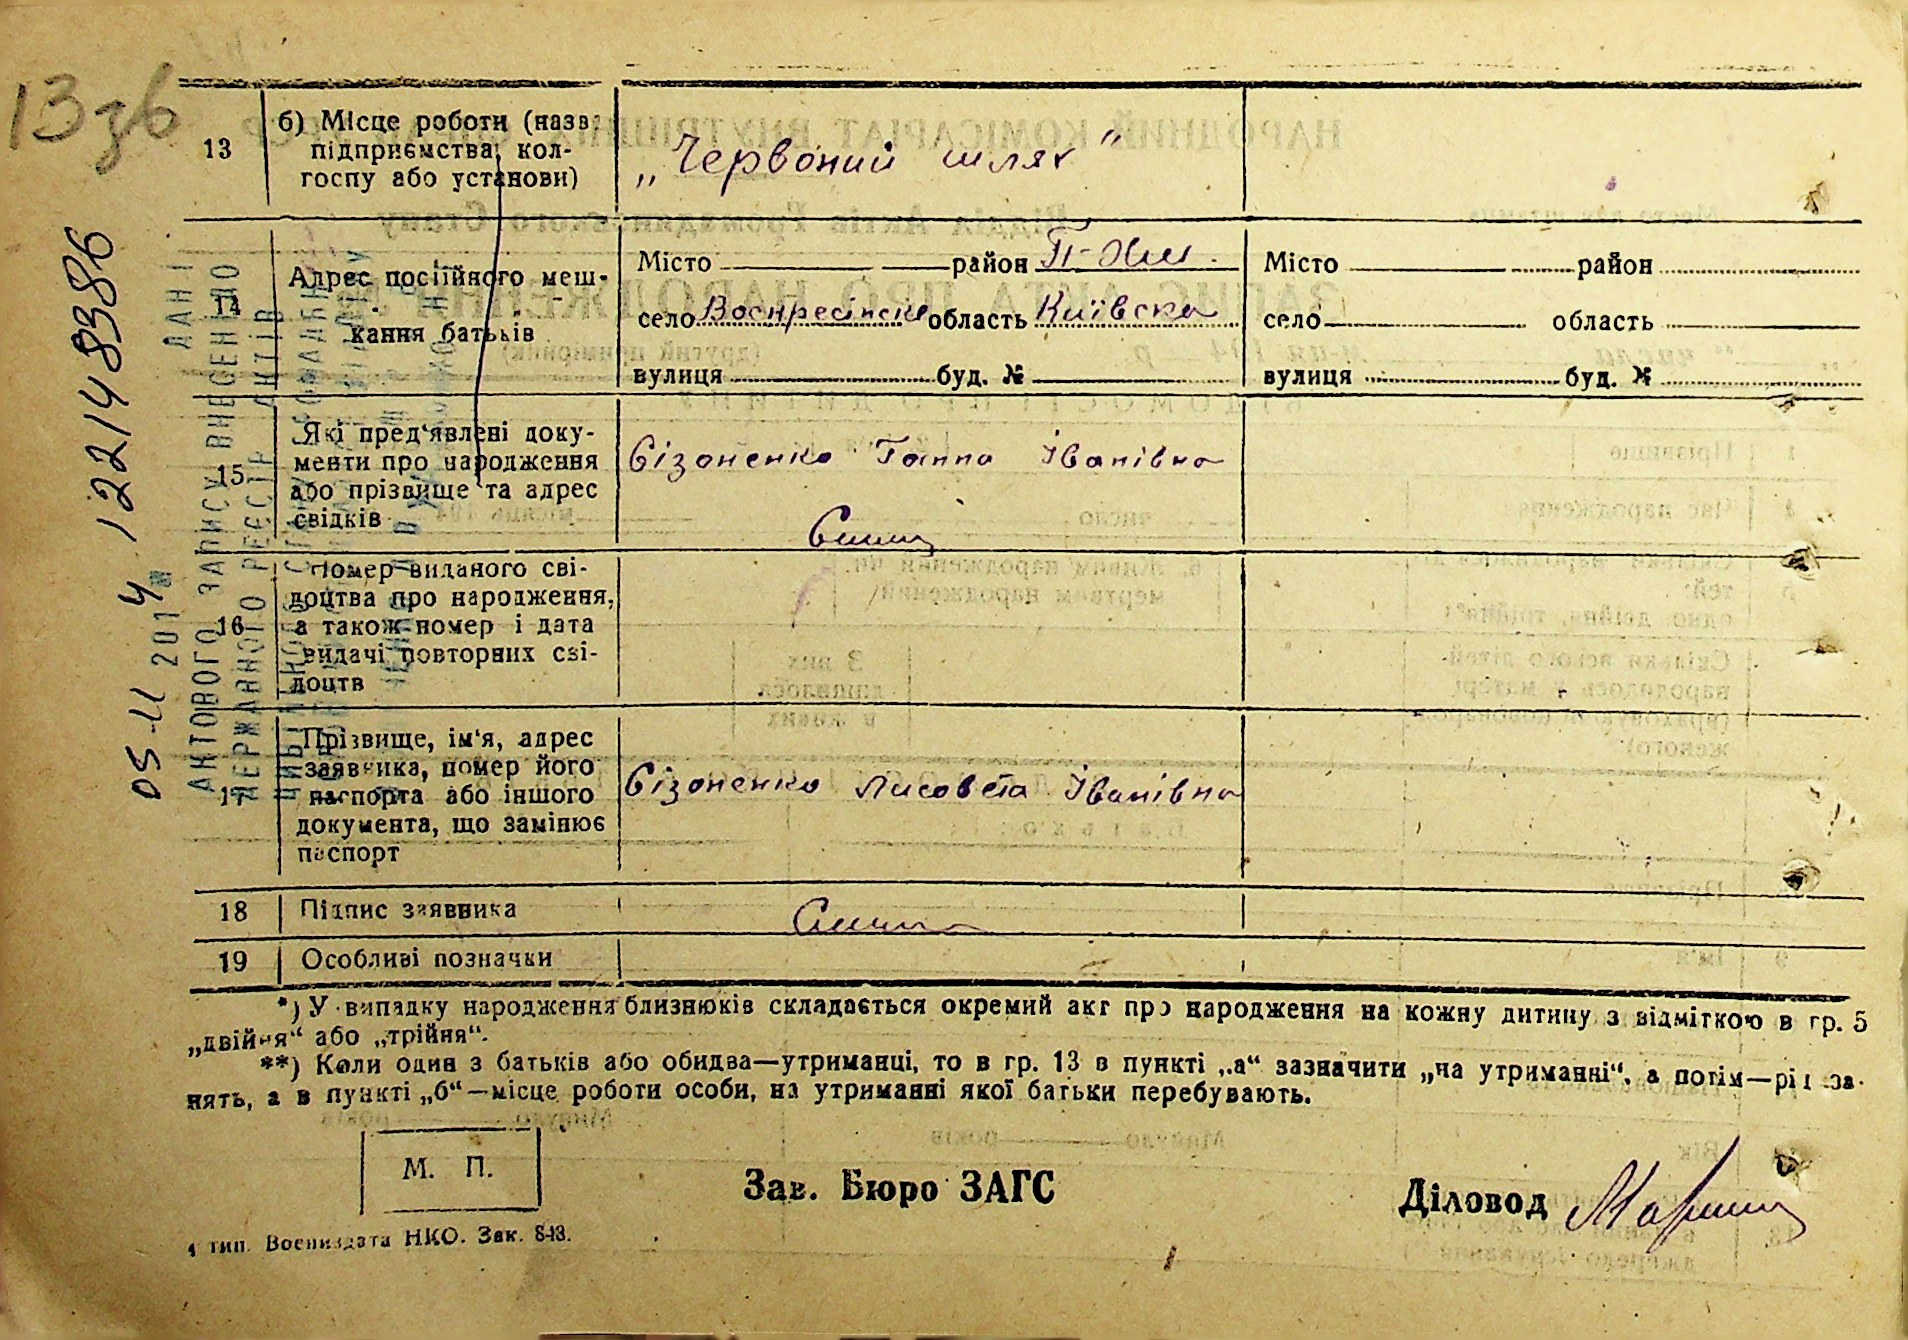 13 зв
13
б) Місце роботи (назва
підприємства, кол-
госпу або установи)
„Червоний шлях"
14
Адрес постійного меш-
кання батьків
Місто район П-Хм.
село область Київска
вулиця буд. №
Місто район
село область
вулиця буд. №
15
Які пред'явлені доку-
менти про народження
або прізвище та адрес
свідків
Сізоненко Ганна Іванівна
16
Номер виданого сві-
доцтва про народження,
а також номер і дата
видачі повторних сві-
доцтв
17
Прізвище, ім'я, адрес
заявника, номер його
паспорта або іншого
документа, що замінює
паспорт
Сізоненко Лисовета Іванівна
18
Підпис заявника
19
Особливі позначки
*) У випадку народження близнюків складається окремий акт про народження на кожну дитину з відміткою в гр. 5
„двійня“ або „трійня“.
**) Коли один з батьків або обидва—утриманці, то в гр. 13 в пункті „а“ зазначити „на утриманні“, а потім—рід за-
нять, а в пункті „б“—місце роботи особи, на утриманні якої батьки перебувають.
М. П.
Зав. Бюро ЗАГС
Діловод
тип. Воениздата НКО. Зак. 843.
12214 8386
ДАНІ
АКТОВОГО ЗАПИСУ ВНЕСЕНО
ДЕРЖАВНОГО РЕЄСТР АКТІВ
05-11 2014